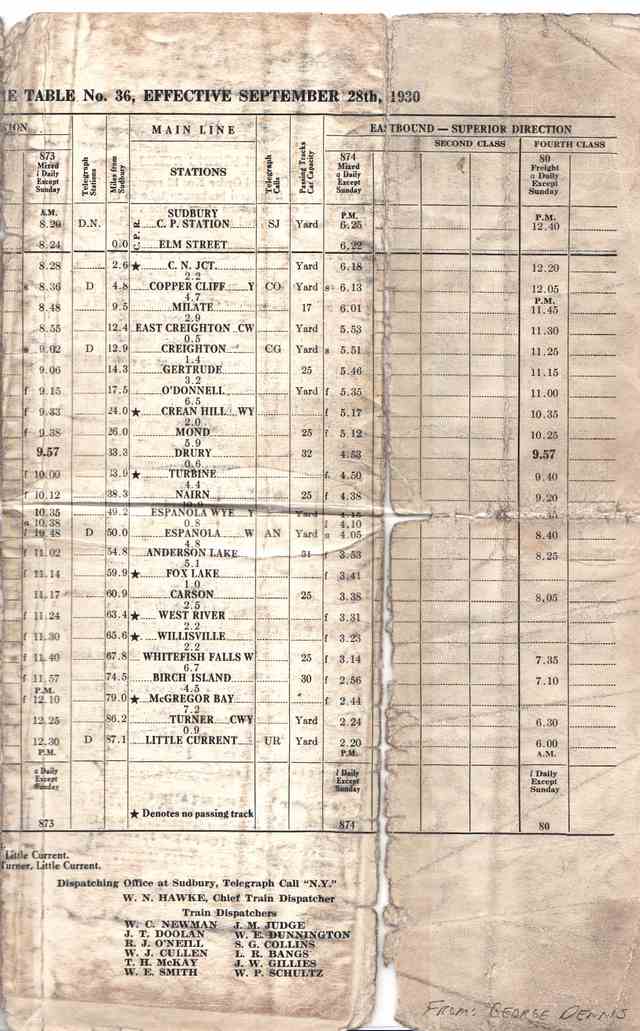 E TABLE No. 36, EFFECTIVE SEPTEMBER 28th, 1930
ION MAIN LINE EASTBOUND — SUPERIOR DIRECTION
SECOND CLASS FOURTH CLASS
873 Mixed Daily Except Sunday Telegraph Stations Miles from Sudbury STATIONS Telegraph Calls Passing Tracks Car Capacity 874 Mixed a Daily Except Sunday 80 Freight a Daily Except Sunday
A.M. SUDBURY P.M. P.M.
8.20 D.N. C. P. R. C. P. STATION SJ Yard 6.25 12.40
8.24 0.0 ELM STREET 6.22
8.28 2.6 ★ C. N. JCT. Yard 6.18 12.20
2.2
s 8.36 D 4.8 COPPER CLIFF Y CO Yard s 6.13 12.05
4.7 P.M.
8.48 9.5 MILATE 17 6.01 11.45
2.9
8.55 12.4 EAST CREIGHTON CW Yard 5.53 11.30
0.5
s 9.02 D 12.9 CREIGHTON CG Yard s 5.51 11.25
1.4
9.06 14.3 GERTRUDE 25 5.46 11.15
3.2
f 9.15 17.5 O'DONNELL Yard f 5.35 11.00
6.5
f 9.33 24.0 ★ CREAN HILL WY f 5.17 10.35
2.0
f 9.38 26.0 MOND 25 f 5.12 10.25
5.9
9.57 33.3 DRURY 32 4.53 9.57
0.6
f 10.00 33.9 ★ TURBINE f 4.50 9.40
4.4
f 10.12 38.3 NAIRN 25 f 4.38 9.20
10.35 49.2 ESPANOLA WYE Y Yard 4.15
s 10.38 0.8 f 4.10
f 10.48 D 50.0 ESPANOLA W AN Yard s 4.05 8.40
4.8
f 11.02 54.8 ANDERSON LAKE 31 f 3.53 8.25
5.1
f 11.14 59.9 ★ FOX LAKE f 3.41
1.0
11.17 60.9 CARSON 25 3.38 8.05
2.5
f 11.24 63.4 ★ WEST RIVER f 3.31
2.2
f 11.30 65.6 ★ WILLISVILLE f 3.23
2.2
s 11.40 67.8 WHITEFISH FALLS W 25 f 3.14 7.35
6.7
f 11.57 74.5 BIRCH ISLAND 30 f 2.56 7.10
P.M. 4.5
f 12.10 79.0 ★ McGREGOR BAY f 2.44
7.2
12.25 86.2 TURNER CWY Yard 2.24 6.30
0.9
12.30 D 87.1 LITTLE CURRENT UR Yard 2.20 6.00
P.M. P.M. A.M.
a Daily Except Sunday l Daily Except Sunday l Daily Except Sunday
★ Denotes no passing track
873 874 80
Little Current.
Turner, Little Current.
Dispatching Office at Sudbury, Telegraph Call "N.Y."
W. N. HAWKE, Chief Train Dispatcher
Train Dispatchers
W. C. NEWMAN J. M. JUDGE
J. T. DOOLAN W. E. DUNNINGTON
R. J. O'NEILL S. G. COLLINS
W. J. CULLEN L. R. BANGS
T. H. McKAY J. W. GILLIES
W. E. SMITH W. P. SCHULTZ
FROM: GEORGE DENNIS